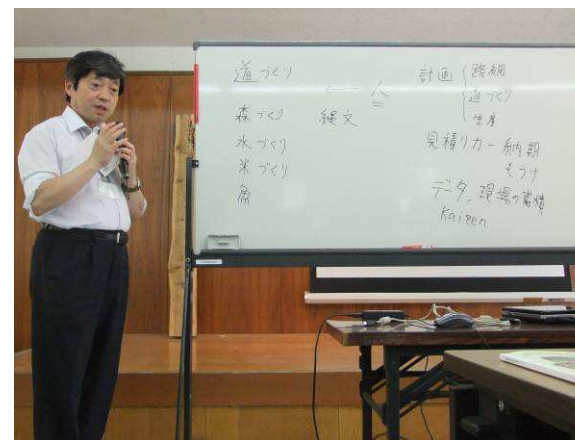 道づくり
← 人
森づくり 縄文
水づくり
米づくり
魚
計画 路網
道づくり
生産
見積り力ー納期
もうけ
データ、現場の蓄積
Kaizen